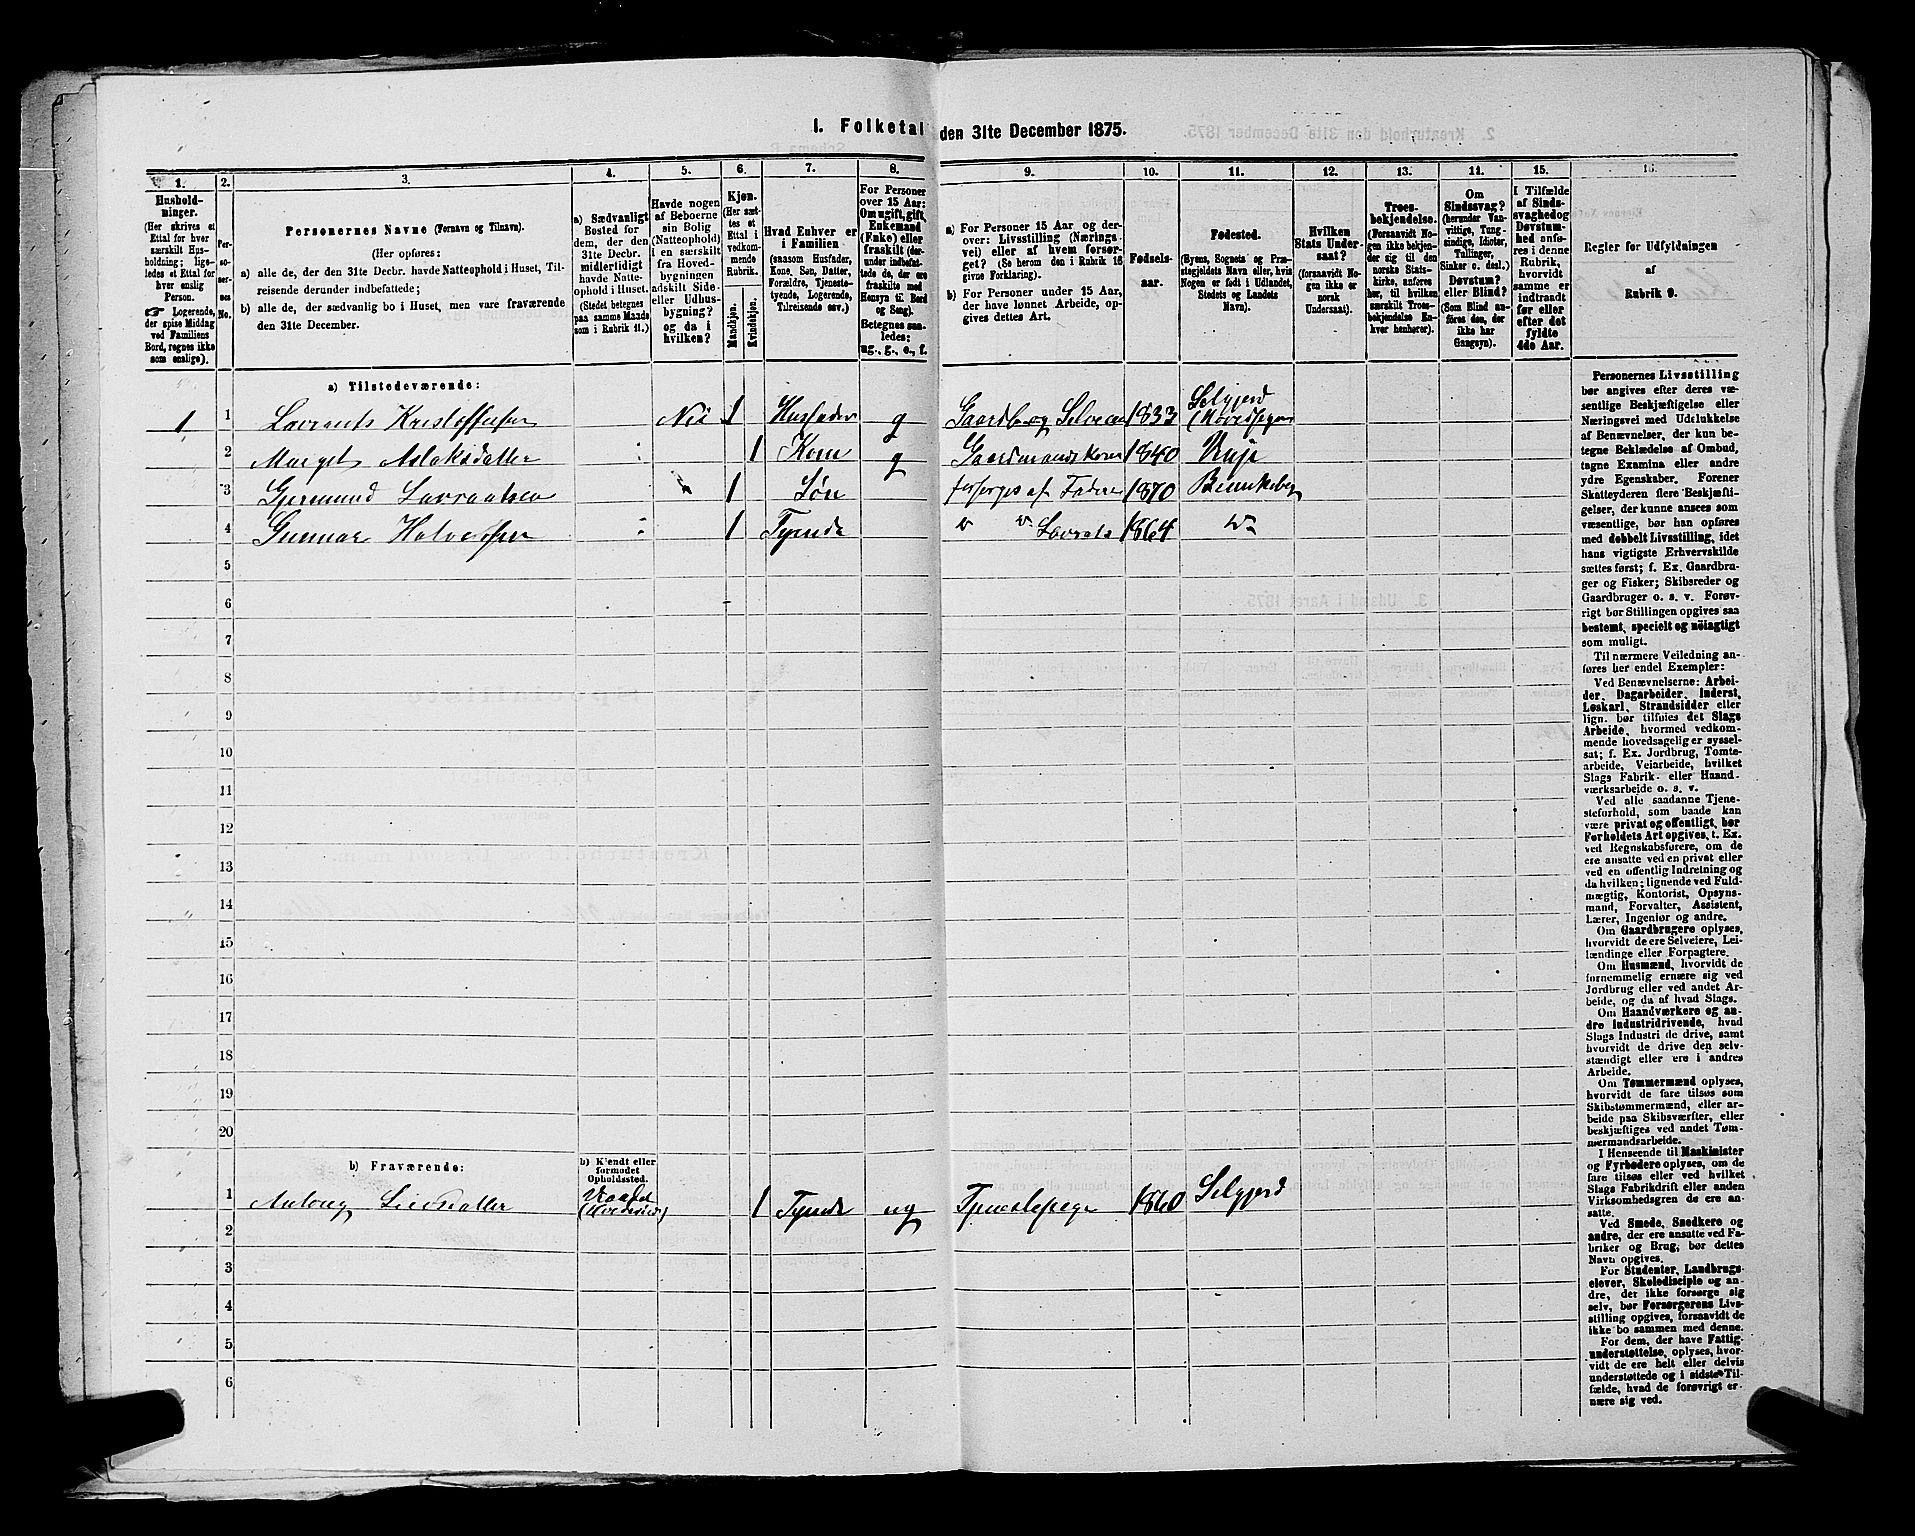 1. Folketal den 31te December 1875.
1. 2. 3. 4. 5. 6. 7. 8. 9. 10. 11. 12. 13. 14. 15. 16.
Hushold-
ninger.
(Her skrives et
Ettal for hver
særskilt Hus-
holdning; lige-
ledes et Ettal for
hver enslig
Person.
☞ Logerende,
der spise Middag
ved Familiens
Bord, regnes ikke
som enslige).
Per-
so-
ner-
nes
No.
Personernes Navne (Fornavn og Tilnavn).
(Her opføres:
a) alle de, der den 31te Decbr. havde Natteophold i Huset, Til-
reisende derunder indbefattede;
b) alle de, der sædvanlig bo i Huset, men vare fraværende
den 31te December.
a) Sædvanligt
Bosted for
dem, der den
31te Decbr.
midlertidigt
havde Natte-
ophold i Huset.
(Stedet betegnes
paa samme Maade
som i Rubrik 11.)
Havde nogen
af Beboerne
sin Bolig
(Natteophold)
i en særskilt
fra Hoved-
bygningen
adskilt Side-
eller Udhus-
bygning?
og da i
hvilken?
Kjøn.
(Her sæt-
tes et
Ettal i
vedkom-
mende
Rubrik.
Mandkjøn.
Kvindekjøn.
Hvad Enhver er
i Familien
(saasom Husfader,
Kone, Søn, Datter,
Forældre, Tjeneste-
tyende, Logerende,
Tilreisende osv.)
For Personer
over 15 Aar:
Om ugift, gift,
Enkemand
(Enke) eller
fraskilt (der-
under indbefat-
tede de, der ere
fraskilte med
Hensyn til Bord
og Seng).
Betegnes saa-
ledes:
ug., g., e., f.
a) For Personer 15 Aar og der-
over: Livsstilling (Nærings-
vei) eller af hvem forsør-
get? (Se herom den i Rubrik 16
givne Forklaring).
b) For Personer under 15 Aar,
der have lønnet Arbeide, op-
gives dettes Art.
Fødsels-
aar.
Fødested.
(Byens, Sognets og Præ-
stegjeldets Navn eller, hvis
Nogen er født i Udlandet,
Stedets og Landets
Navn).
Hvilken
Stats Under-
saat?
(forsaavidt No-
gen ikke er
norsk
Undersaat).
Troes-
bekjendelse.
(Forsaavidt No-
gen ikke bekjen-
der sig til den
norske Stats-
kirke, anføres
her, til hvilken
særskilt Troes-
bekjendelse En-
hver henhører).
Om
Sindssvag?
(herunder Van-
vittige, Tung-
sindige, Idioter,
Tullinger,
Sinker o. desl.)
Døvstum?
eller Blind?
(Som Blind an-
føres den, der
ikke har
Gangsyn).
I Tilfælde
af Sinds-
svaghed og
Døvstum-
hed anfø-
res i denne
Rubrik,
hvorvidt
samme er
indtraadt
før eller
efter det
fyldte
4de Aar.
Regler for Udfyldningen
af
Rubrik 9.
a) Tilstedeværende:
1 1 Lavrants Kristoffersen Nei 1 Husfader g Gaardbr. og Selveier 1833 Selgjerd
2 Marget Aslaksdatter 1 Kone g Gaardmands kone 1840
3 Gjermund Lavrantsen 1 Søn forsørges af Fader 1870
4 Gunnar Halvorsen 1 Tyende Lavrats 1864
5
6
7
8
9
10
11
12
13
14
15
16
17
18
19
20
b) Fraværende:
b) Kjendt eller
formodet
Opholdssted.
1 Livsdatter 1 Tyende ug 1860 Selgjerd
2
3
4
5
6
Personernes Livsstilling
bør angives efter deres væ-
sentlige Beskjæftigelse eller
Næringsvei med Udelukkelse
af Benævnelser, der kun be-
tegne Beklædelse af Ombud,
tagne Examina eller andre
ydre Egenskaber. Forener
Skatteyderen flere Beskjæfti-
gelser, der kunne ansees som
væsentlige, bør han opføres
med dobbelt Livsstilling, idet
hans vigtigste Erhvervskilde
sættes først; f. Ex. Gaardbru-
ger og Fisker; Skibsreder og
Gaardbruger o. s. v. Forøv-
rigt bør Stillingen opgives saa
bestemt, specielt og nöiagtigt
som muligt.
Til nærmere Veiledning an-
føres her endel Exempler:
Ved Benævnelserne: Arbei-
der, Dagarbeider, Inderst,
Løskarl, Strandsidder eller
lign. bør tilføies det Slags
Arbeide, hvormed vedkom-
mende hovedsagelig er syssel-
sat; f. Ex. Jordbrug, Tomte-
arbeide, Veiarbeide, hvilket
Slags Fabrik- eller Haand-
værksarbeide o. s. v.
Ved alle saadanne Tjene-
steforhold, som baade kan
være privat og offentligt, bør
Forholdets Art opgives, t. Ex.
ved Regnskabsførere, om de
ere ansatte ved en privat eller
ved en offentlig Indretning og
da hvilken; lignende ved Fuld-
mægtig, Kontorist, Opsyns-
mand, Forvalter, Assistent,
Lærer, Ingeniør og andre.
Om Gaardbrugere oplyses,
hvorvidt de ere Selveiere, Lei-
lændinge eller Forpagtere.
Om Husmænd, hvorvidt de
fornemmelig ernære sig ved
Jordbrug eller ved andet Ar-
beide, og da af hvad Slags.
Om Haandværkere og an-
dre Industridrivende, hvad
Slags Industri de drive, samt
hvorvidt de drive den selv-
stændigt eller ere i andres
Arbeide.
Om Tømmermænd oplyses,
hvorvidt de fare tilsøs som
Skibstømmermænd, eller ar-
beide paa Skibsværfter, eller
beskjæftiges ved andet Tøm-
mermandsarbeide.
I Henseende til Maskinister
og Fyrbødere oplyses, om de
fare tilsøs eller ved hvilket
Slags Fabrikdrift eller anden
Virksomhedsgren de ere an-
satte.
Ved Smede, Snedkere og
andre, der ere ansatte ved Fa-
briker og Brug, bør dettes
Navn opgives.
For Studenter, Landbrugs-
elever, Skoledisciple og an-
dre, der ikke forsørge sig
selv, bør Forsørgerens Livs-
stilling opgives, forsaavidt de
ikke bo sammen med denne.
For dem, der have Fattig-
understøttelse, oplyses, hvor-
vidt de ere helt eller delvis
understøttede og i sidste Til-
fælde, hvad de forøvrigt er-
nære sig ved.